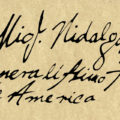 Migl. Hidalgo
neralissimo
e America